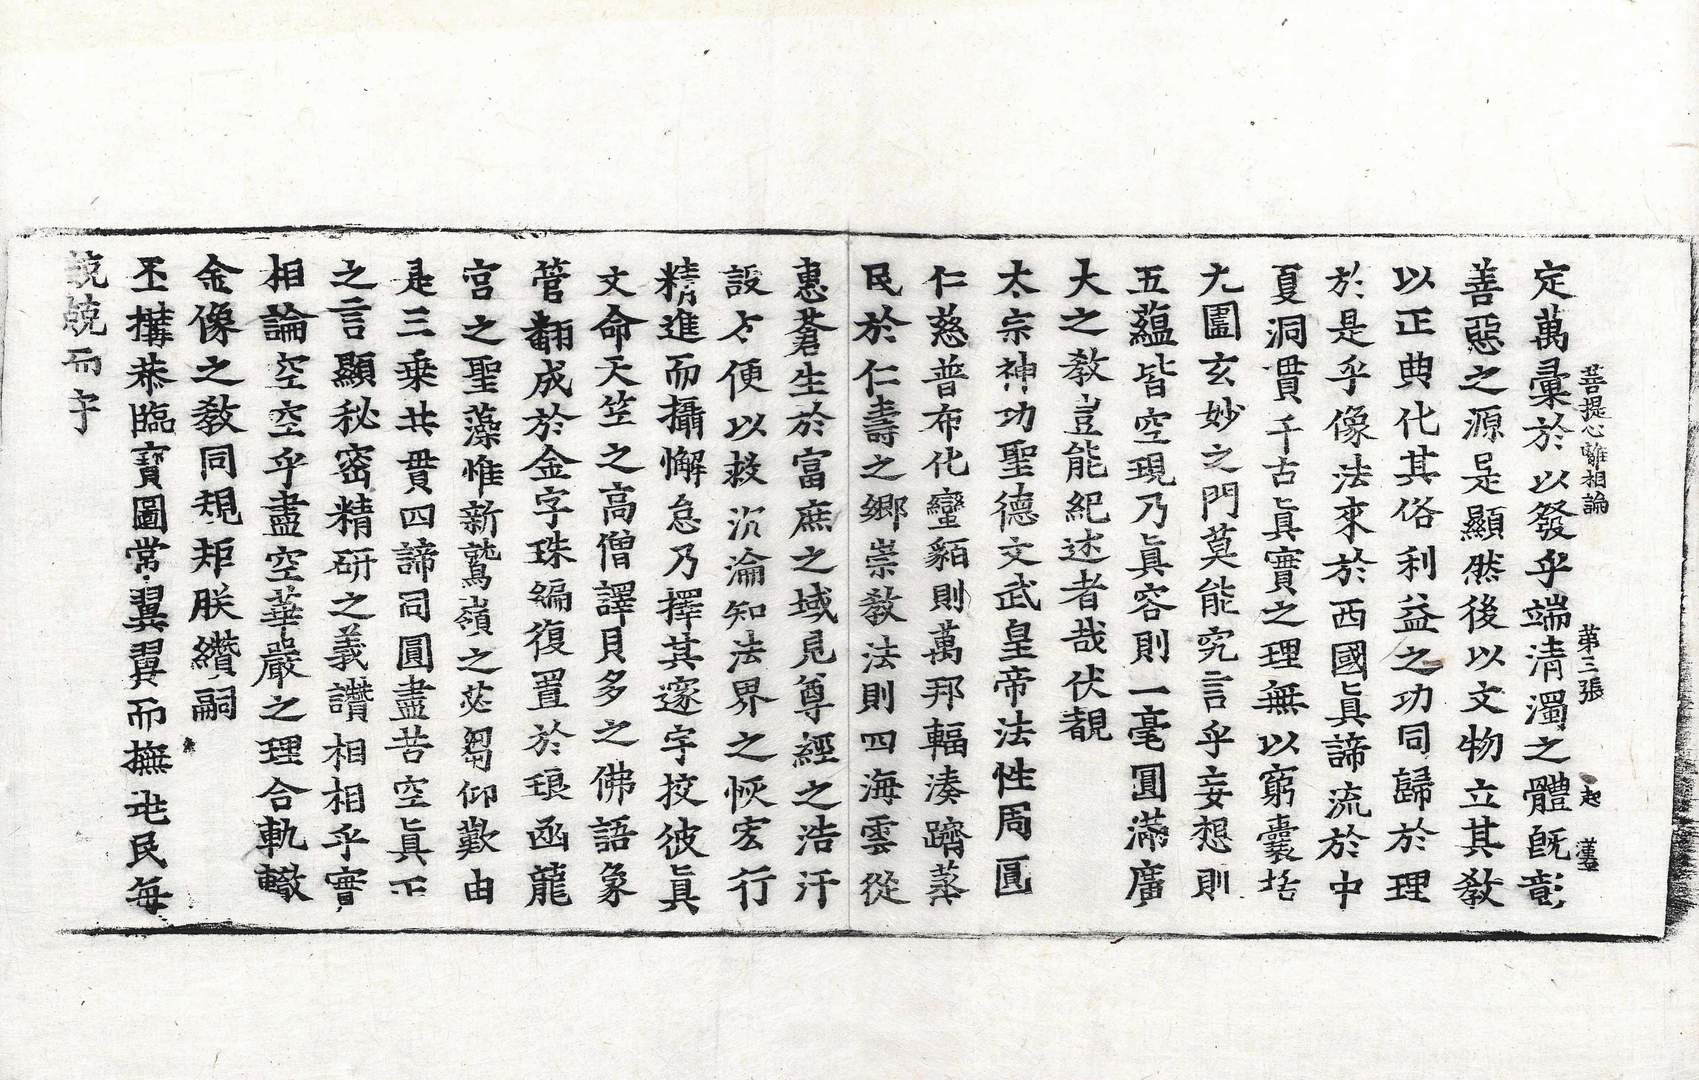 菩提心離相論 第三張 起
定萬彙於以發乎端清濁之體旣彰
善惡之源是顯然後以文物立其敎
以正典化其俗利益之功同歸於理
於是乎像法來於西國眞諦流於中
夏洞貫千古眞實之理無以窮囊括
九圍玄妙之門莫能究言乎妄想則
五蘊皆空現乃眞容則一毫圓滿廣
大之敎豈能紀述者哉伏覩
太宗神功聖德文武皇帝法性周圓
仁慈普布化蠻貊則萬邦輻湊躋蒸
民於仁壽之鄕崇敎法則四海雲從
惠蒼生於富庶之域見尊經之浩汗
設方便以救沉淪知法界之恢宏行
精進而攝懈怠乃擇其邃字挍彼眞
文命天竺之高僧譯貝多之佛語象
管翻成於金字珠編復置於琅函龍
宮之聖藻惟新鷲嶺之苾蒭仰歎由
是三乘共貫四諦同圓盡苦空眞正
之言顯秘密精研之義讚相相乎實
相論空空乎盡空華嚴之理合軌轍
金像之敎同規矩朕纘嗣
丕搆恭臨寶圖常翼翼而撫北民每
兢兢而守